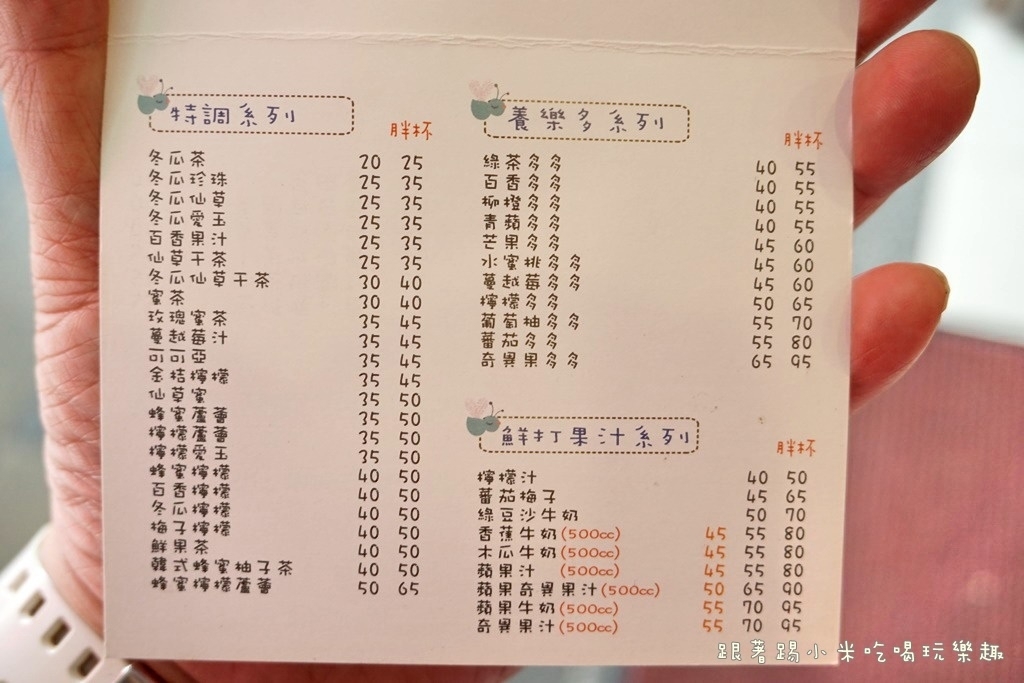 特調系列
胖杯
冬瓜茶 20 25
冬瓜珍珠 25 35
冬瓜仙草 25 35
冬瓜愛玉 25 35
百香果汁 25 35
仙草干茶 25 35
冬瓜仙草干茶 30 40
蜜茶 30 40
玫瑰蜜茶 35 45
蔓越莓汁 35 45
可可亞 35 45
金桔檸檬 35 45
仙草蜜 35 50
蜂蜜蘆薈 35 50
檸檬蘆薈 35 50
檸檬愛玉 35 50
蜂蜜檸檬 40 50
百香檸檬 40 50
冬瓜檸檬 40 50
梅子檸檬 40 50
鮮果茶 40 50
韓式蜂蜜柚子茶 40 50
蜂蜜檸檬蘆薈 50 65
養樂多系列
胖杯
綠茶多多 40 55
百香多多 40 55
柳橙多多 40 55
青蘋多多 40 55
芒果多多 45 60
水蜜桃多多 45 60
蔓越莓多多 45 60
檸檬多多 50 65
葡萄柚多多 55 70
蕃茄多多 55 80
奇異果多多 65 95
鮮打果汁系列
胖杯
檸檬汁 40 50
蕃茄梅子 45 65
綠豆沙牛奶 50 70
香蕉牛奶(500cc) 45 55 80
木瓜牛奶(500cc) 45 55 80
蘋果汁 (500cc) 45 55 80
蘋果奇異果汁(500cc) 50 65 90
蘋果牛奶(500cc) 55 70 95
奇異果汁(500cc) 55 70 95
跟著踢小米吃喝玩樂趣